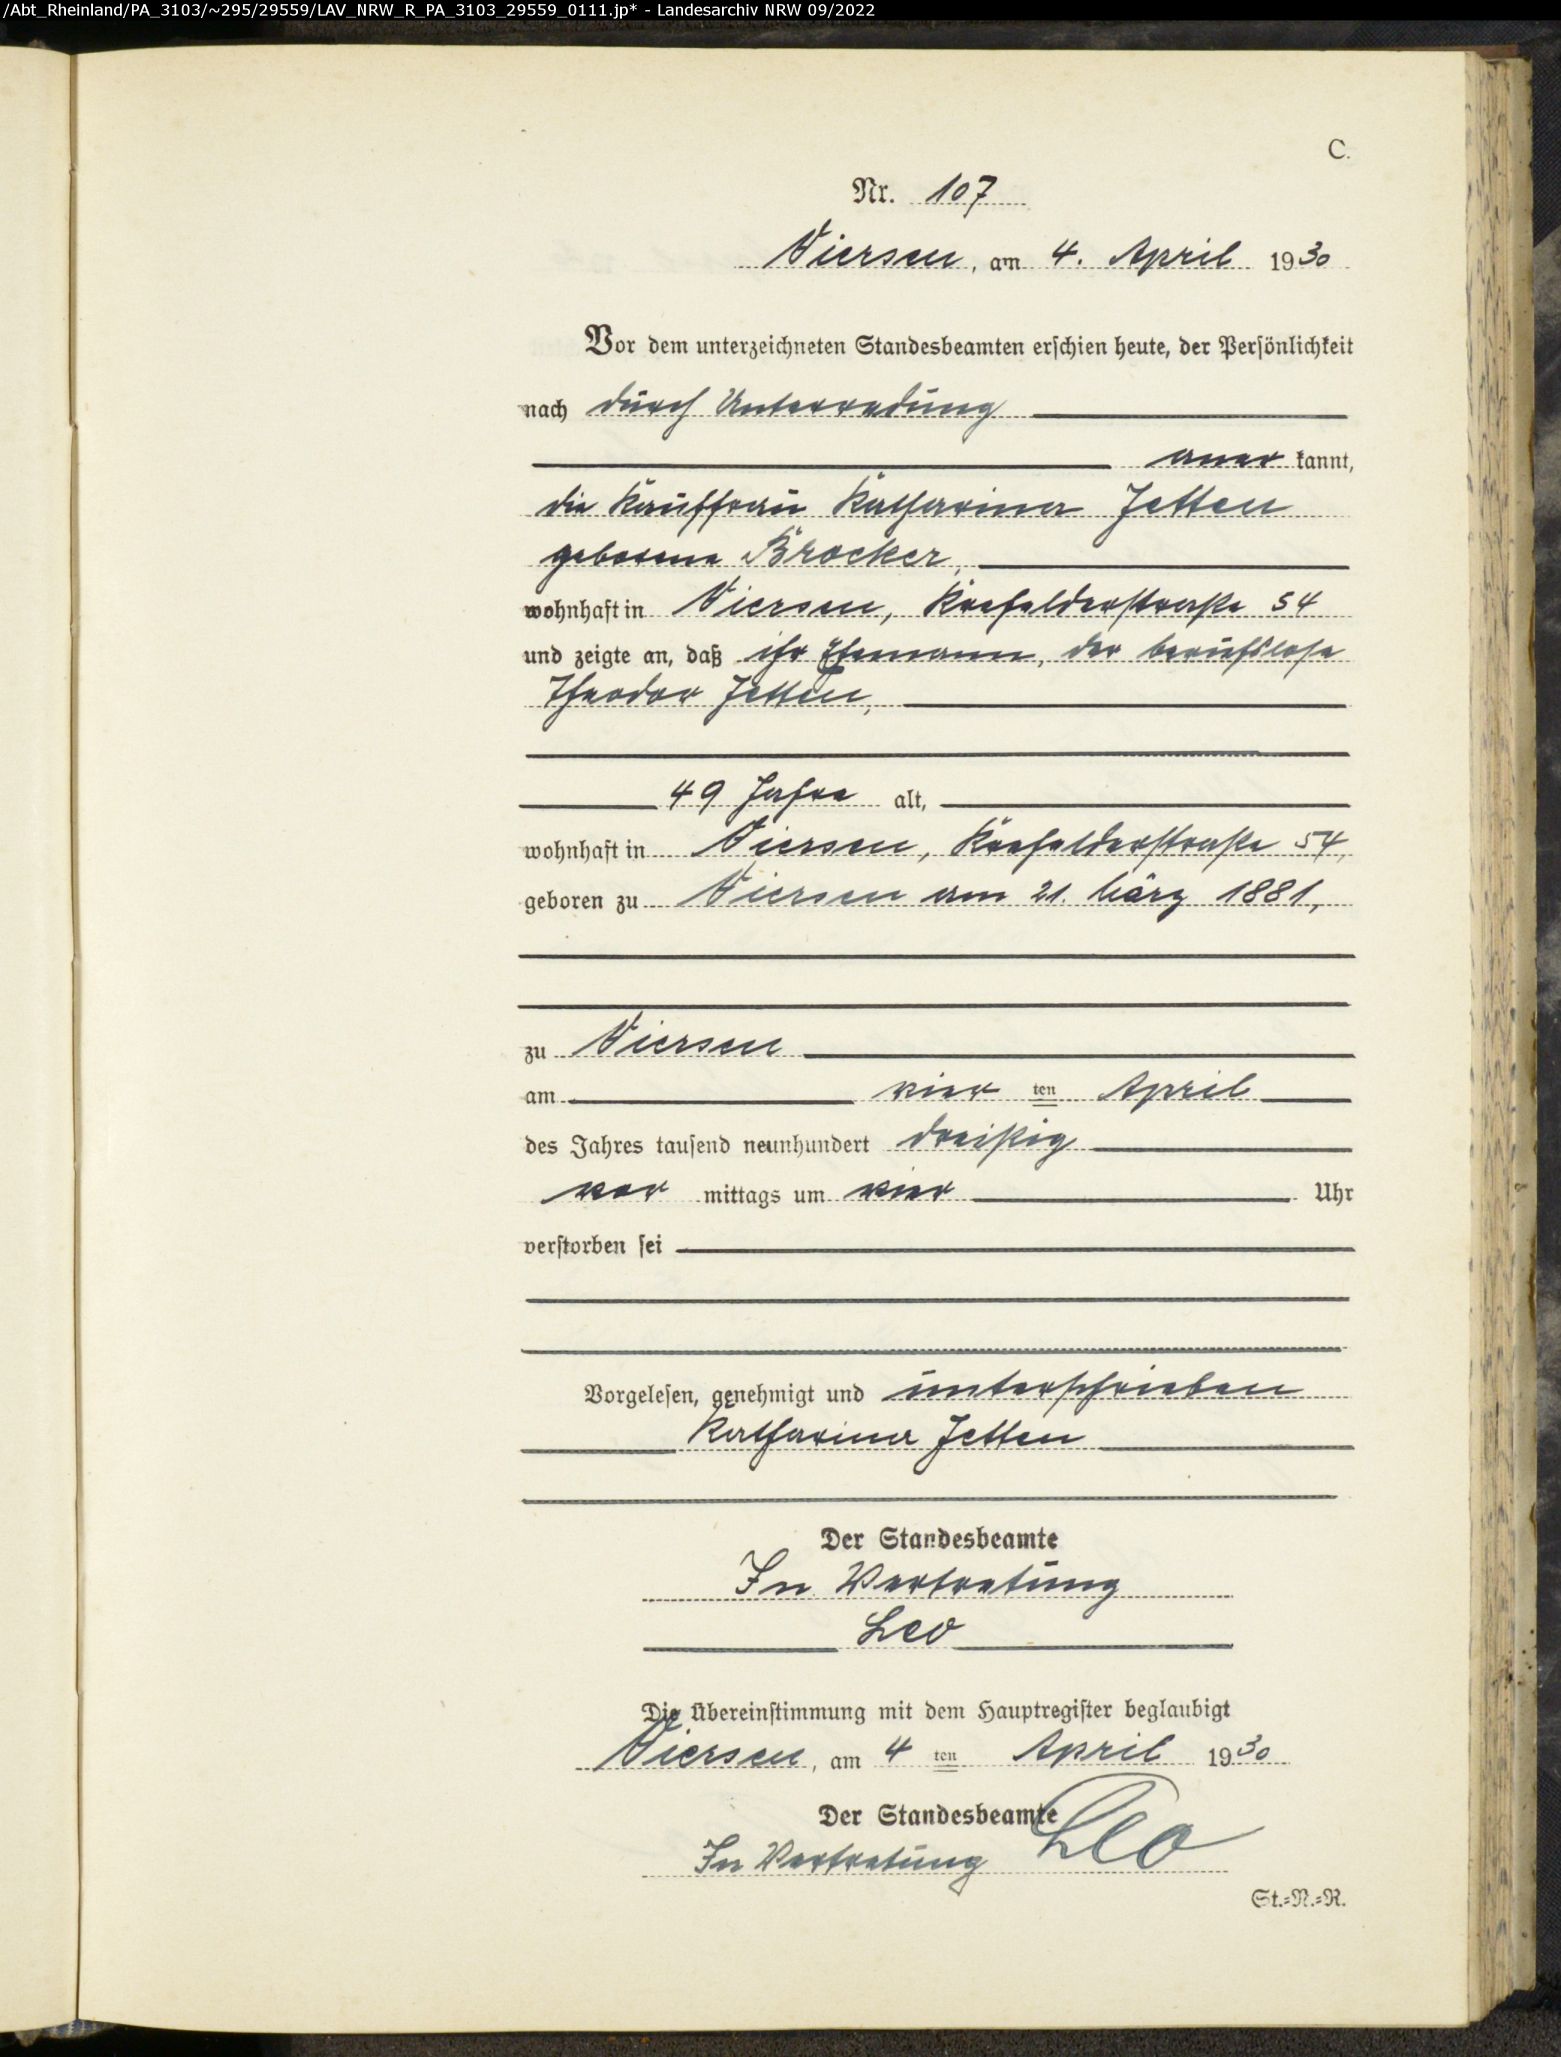 /Abt_Rheinland/PA_3103/~295/29559/LAV_NRW_R_PA_3103_29559_0111.jp* - Landesarchiv NRW 09/2022
C.
Nr. 107
Viersen, am 4. April 1930
Vor dem unterzeichneten Standesbeamten erschien heute, der Persönlichkeit
nach durch Unterredung
aner kannt,
die Kauffrau Katharina Jetten
geborene Bröcker,
wohnhaft in Viersen, Krefelderstraße 54
und zeigte an, daß ihr Ehemann, der berufslose
Theodor Jetten,
49 Jahre alt,
wohnhaft in Viersen, Krefelderstraße 54,
geboren zu Viersen am 21. März 1881,
zu Viersen
am vier ten April
des Jahres tausend neunhundert dreißig
vor mittags um vier Uhr
verstorben sei
Vorgelesen, genehmigt und unterschrieben
Katharina Jetten
Der Standesbeamte
In Vertretung
Leo
Die Übereinstimmung mit dem Hauptregister beglaubigt
Viersen, am 4 ten April 1930
Der Standesbeamte
In Vertretung Leo
St.=N.=R.